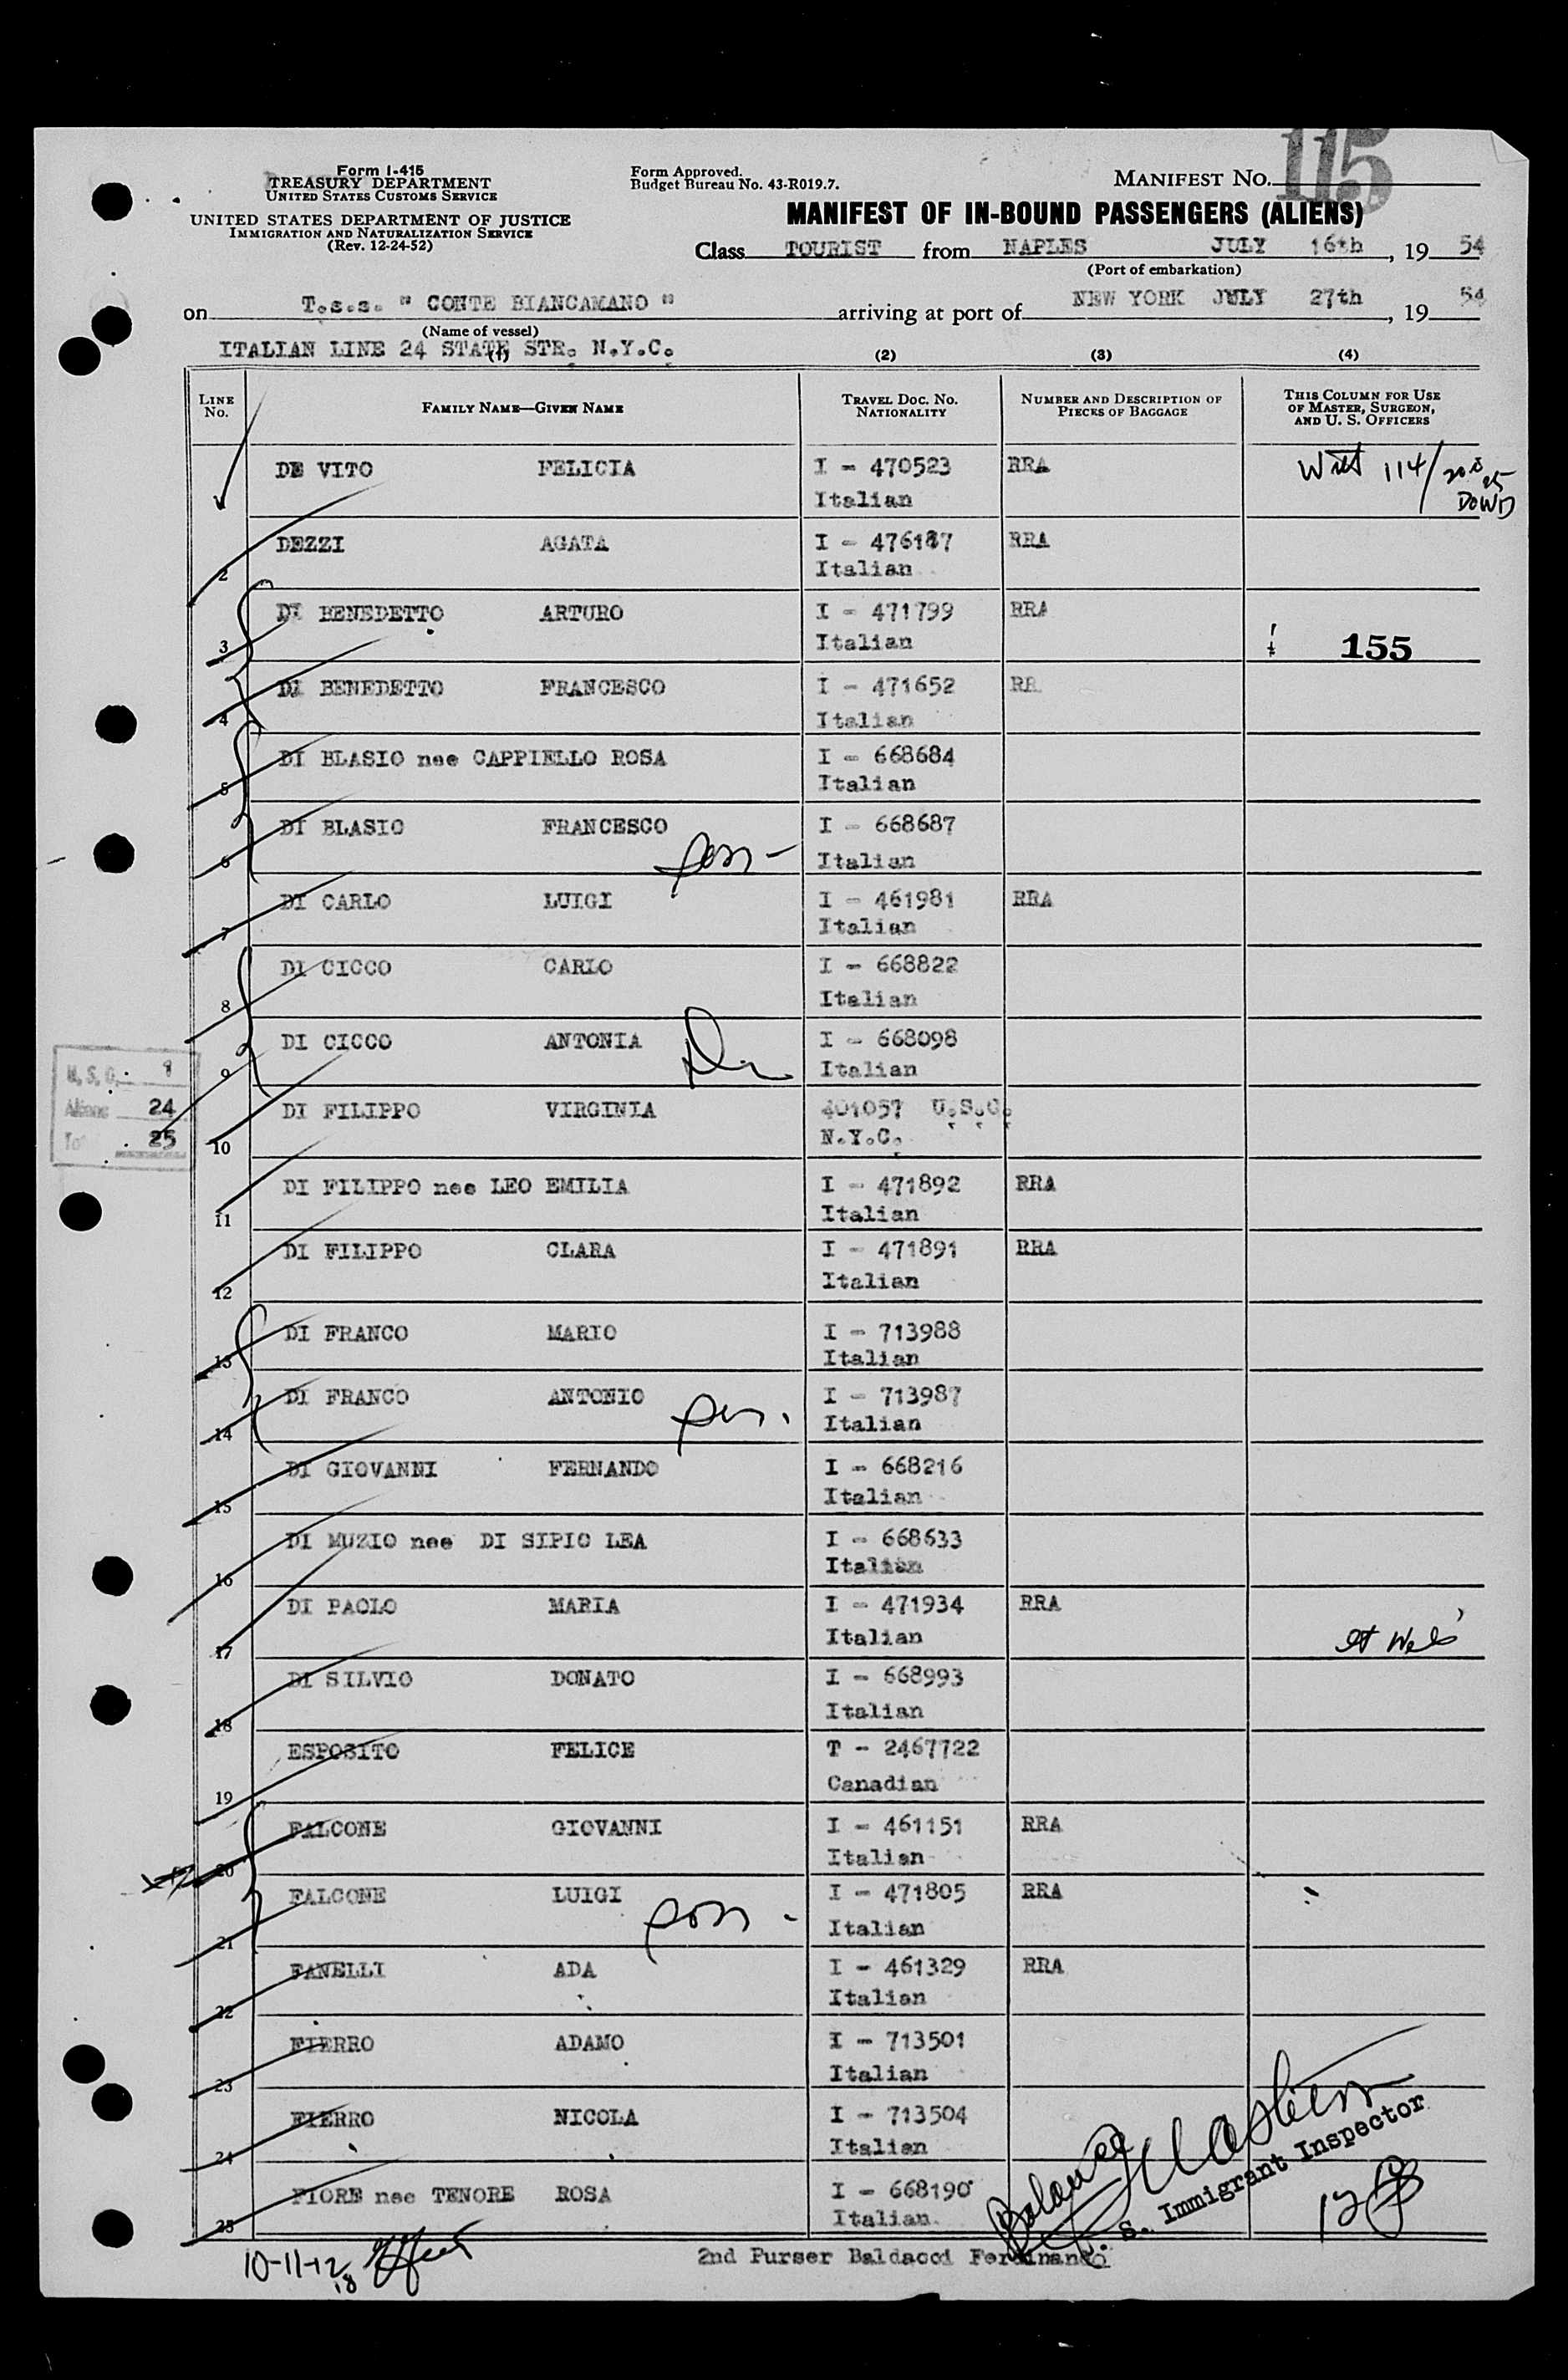 115
Form I-415
TREASURY DEPARTMENT
UNITED STATES CUSTOMS SERVICE
UNITED STATES DEPARTMENT OF JUSTICE
IMMIGRATION AND NATURALIZATION SERVICE
(Rev. 12-24-52)
Form Approved.
Budget Bureau No. 43-R019.7.
MANIFEST NO.
MANIFEST OF IN-BOUND PASSENGERS (ALIENS)
Class TOURIST from NAPLES JULY 16th, 19 54
(Port of embarkation)
on T.s.s. " CONTE BIANCAMANO " arriving at port of NEW YORK JULY 27th, 19 54
(Name of vessel)
ITALIAN LINE 24 STATE STR. N.Y.C.
(1) (2) (3) (4)
LINE NO. FAMILY NAME—GIVEN NAME TRAVEL DOC. NO. NATIONALITY NUMBER AND DESCRIPTION OF PIECES OF BAGGAGE THIS COLUMN FOR USE OF MASTER, SURGEON, AND U. S. OFFICERS
DE VITO FELICIA I - 470523 RRA 114/
Italian DOWD
DEZZI AGATA I - 476187 RRA
2 Italian
DI BENEDETTO ARTURO I - 471799 RRA
3 Italian 155
DI BENEDETTO FRANCESCO I - 471652 RR
4 Italian
DI BLASIO nee CAPPIELLO ROSA I - 668684
5 Italian
DI BLASIO FRANCESCO I - 668687
6 Italian
DI CARLO LUIGI I - 461981 RRA
7 Italian
DI CICCO CARLO I - 668822
8 Italian
DI CICCO ANTONIA I - 668098
9 Italian
U.S.C. 1
Aliens 24
Total 25
DI FILIPPO VIRGINIA 401057 U.S.C.
10 N.Y.C.
DI FILIPPO nee LEO EMILIA I - 471892 RRA
11 Italian
DI FILIPPO CLARA I - 471891 RRA
12 Italian
DI FRANCO MARIO I - 713988
13 Italian
DI FRANCO ANTONIO I - 713987
14 Italian
DI GIOVANNI FERNANDO I - 668216
15 Italian
DI MUZIO nee DI SIPIO LEA I - 668633
16 Italian
DI PAOLO MARIA I - 471934 RRA
17 Italian
DI SILVIO DONATO I - 668993
18 Italian
ESPOSITO FELICE T - 2467722
19 Canadian
FALCONE GIOVANNI I - 461151 RRA
20 Italian
FALCONE LUIGI I - 471805 RRA
21 Italian
FANELLI ADA I - 461329 RRA
22 Italian
FIERRO ADAMO I - 713501
23 Italian
FIERRO NICOLA I - 713504
24 Italian
FIORE nee TENORE ROSA I - 668190
25 Italian
S. Immigrant Inspector
10-11-12
18
2nd Purser Baldacci Ferdinando